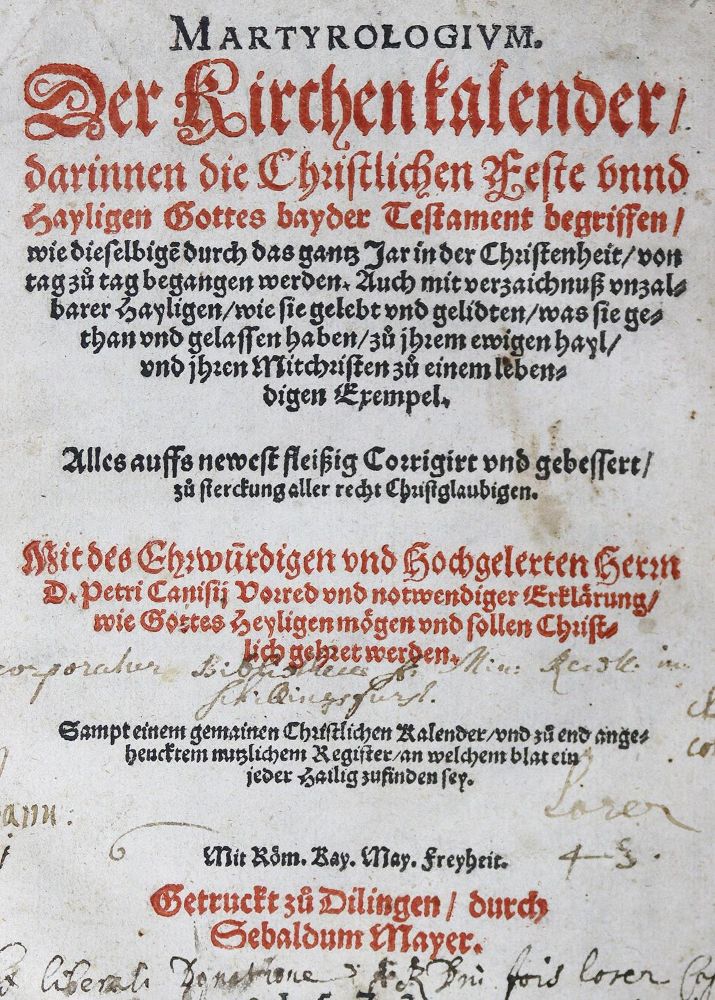 MARTYROLOGIVM.
Der Kirchenkalender/
darinnen die Christlichen Feste vnnd
Hayligen Gottes bayder Testament begriffen/
wie dieselbigē durch das gantz Jar in der Christenheit/von
tag zů tag begangen werden. Auch mit verzaichnuß vnzal-
barer Hayligen/wie sie gelebt vnd gelidten/was sie ge-
than vnd gelassen haben/zů jhrem ewigen hayl/
vnd jhren Mitchristen zů einem leben-
digen Exempel.
Alles auffs newest fleißig Corrigirt vnd gebessert/
zů sterckung aller recht Christglaubigen.
Mit des Ehrwürdigen vnd Hochgelerten Herrn
D. Petri Canisij Vorred vnd notwendiger Erklärung/
wie Gottes Heyligen mögen vnd sollen Christ-
lich gehret werden.
Schillingsfurst.
Sampt einem gemainen Christlichen Kalender/vnd zů end ange-
hencktem nutzlichem Register/an welchem blat ein
jeder Hailig zufinden sey.
Lorer
Mit Röm. Kay. May. Freyheit.
Getruckt zů Dilingen/ durch
Sebaldum Mayer.
liberali Donatione